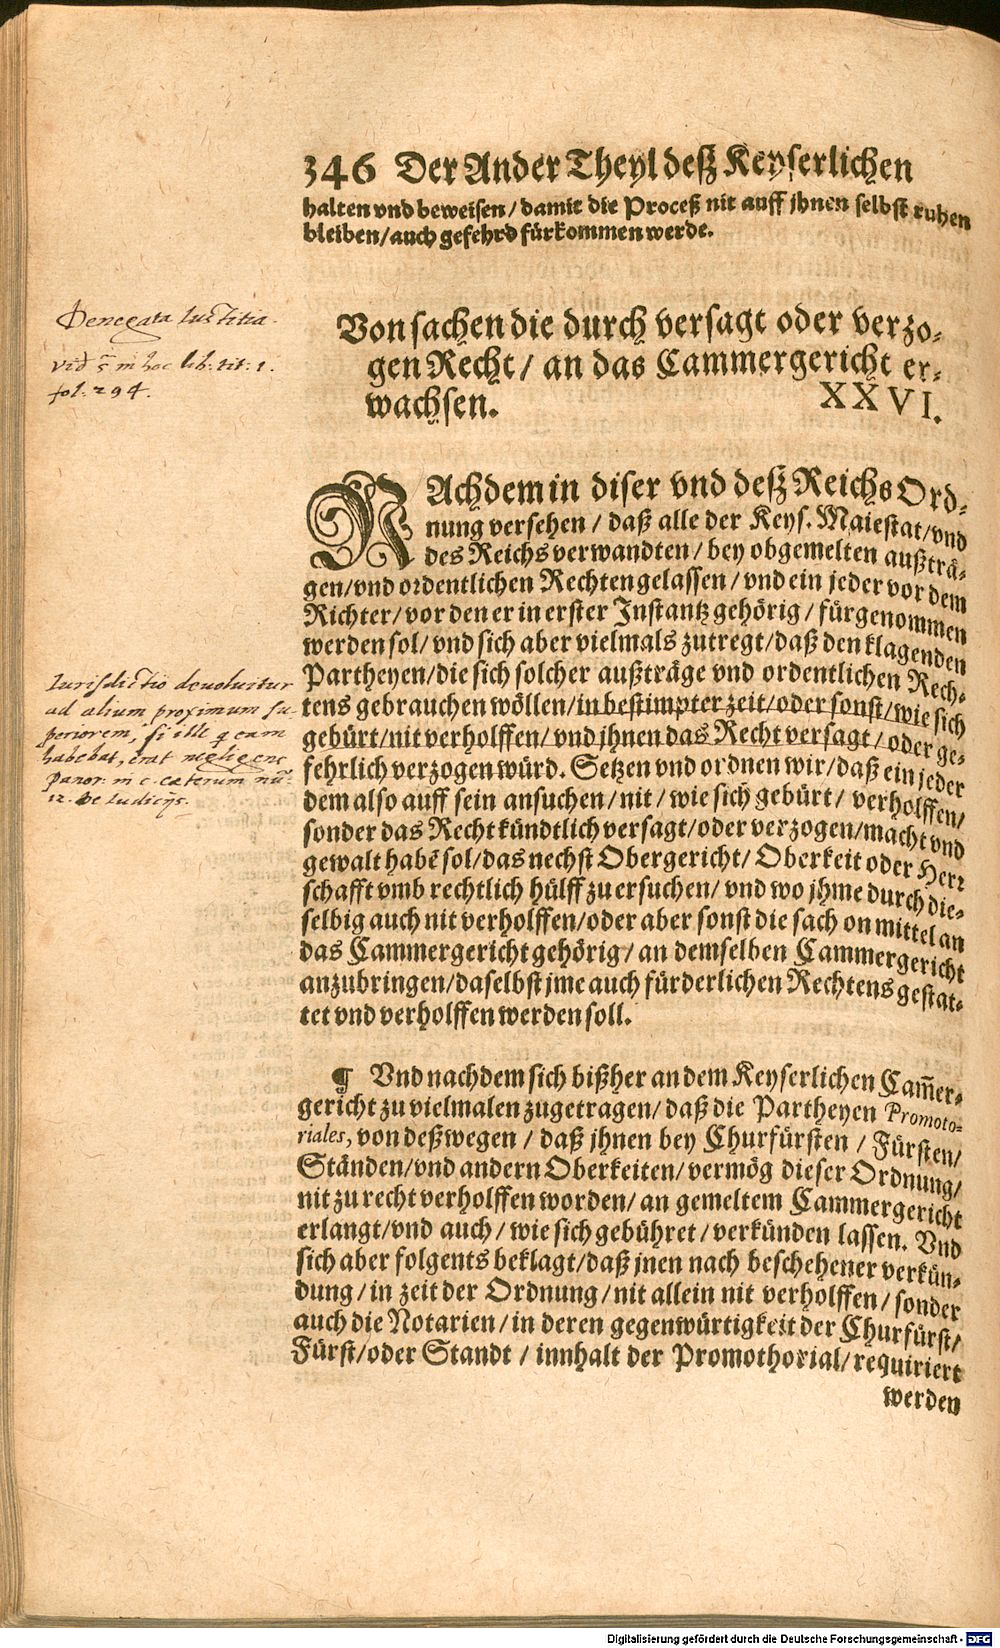 346 Der Ander Theyl deß Keyserlichen
halten vnd beweisen / damit die Proceß nit auff jhnen selbst ruhen
bleiben / auch gefehrd fürkommen werde.
Denegata Iustitia.
vid. s. in hoc lib: tit: 1.
fol: 294.
Von sachen die durch versagt oder verzo-
gen Recht / an das Cammergericht er-
wachsen. XXVI.
NAchdem in diser vnd deß Reichs Ord-
nung versehen / daß alle der Keys. Maiestat / vnd
des Reichs verwandten / bey obgemelten außträ-
gen / vnd ordentlichen Rechten gelassen / vnd ein jeder vor dem
Richter / vor den er in erster Instantz gehörig / fürgenommen
werden sol / vnd sich aber vielmals zutregt / daß den klagenden
Partheyen / die sich solcher außträge vnd ordentlichen Rech-
tens gebrauchen wöllen / in bestimpter zeit / oder sonst / wie sich
gebürt / nit verholffen / vnd jhnen das Recht versagt / oder ge-
fehrlich verzogen würd. Setzen vnd ordnen wir / daß ein jeder
dem also auff sein ansuchen / nit / wie sich gebürt / verholffen /
sonder das Recht kündtlich versagt / oder verzogen / macht vnd
gewalt habē sol / das nechst Obergericht / Oberkeit oder Herr
schafft vmb rechtlich hülff zu ersuchen / vnd wo jhme durch die-
selbig auch nit verholffen / oder aber sonst die sach on mittel an
das Cammergericht gehörig / an demselben Cammergericht
anzubringen / daselbst jme auch fürderlichen Rechtens gestat-
tet vnd verholffen werden soll.
Iurisdictio deuoluitur
ad alium proximum su-
periorem, si ille q eam
habebat, erat negligens
Panor: in c. ceterum nū:
12. de Iudicijs.
¶ Vnd nachdem sich bißher an dem Keyserlichen Cam̄er-
gericht zu vielmalen zugetragen / daß die Partheyen Promoto-
riales, von deßwegen / daß jhnen bey Churfürsten / Fürsten /
Ständen / vnd andern Oberkeiten / vermög dieser Ordnung /
nit zu recht verholffen worden / an gemeltem Cammergericht
erlangt / vnd auch / wie sich gebühret / verkünden lassen. Vnd
sich aber folgents beklagt / daß jnen nach beschehener verkün-
dung / in zeit der Ordnung / nit allein nit verholffen / sonder
auch die Notarien / in deren gegenwürtigkeit der Churfürst /
Fürst / oder Standt / innhalt der Promothorial / requiriert
werden
Digitalisierung gefördert durch die Deutsche Forschungsgemeinschaft - DFG